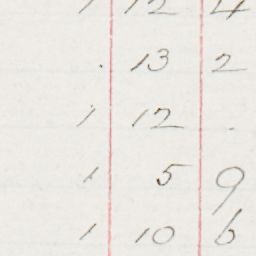 1 12 4
. 13 2
1 12 .
1 5 9
1 10 6